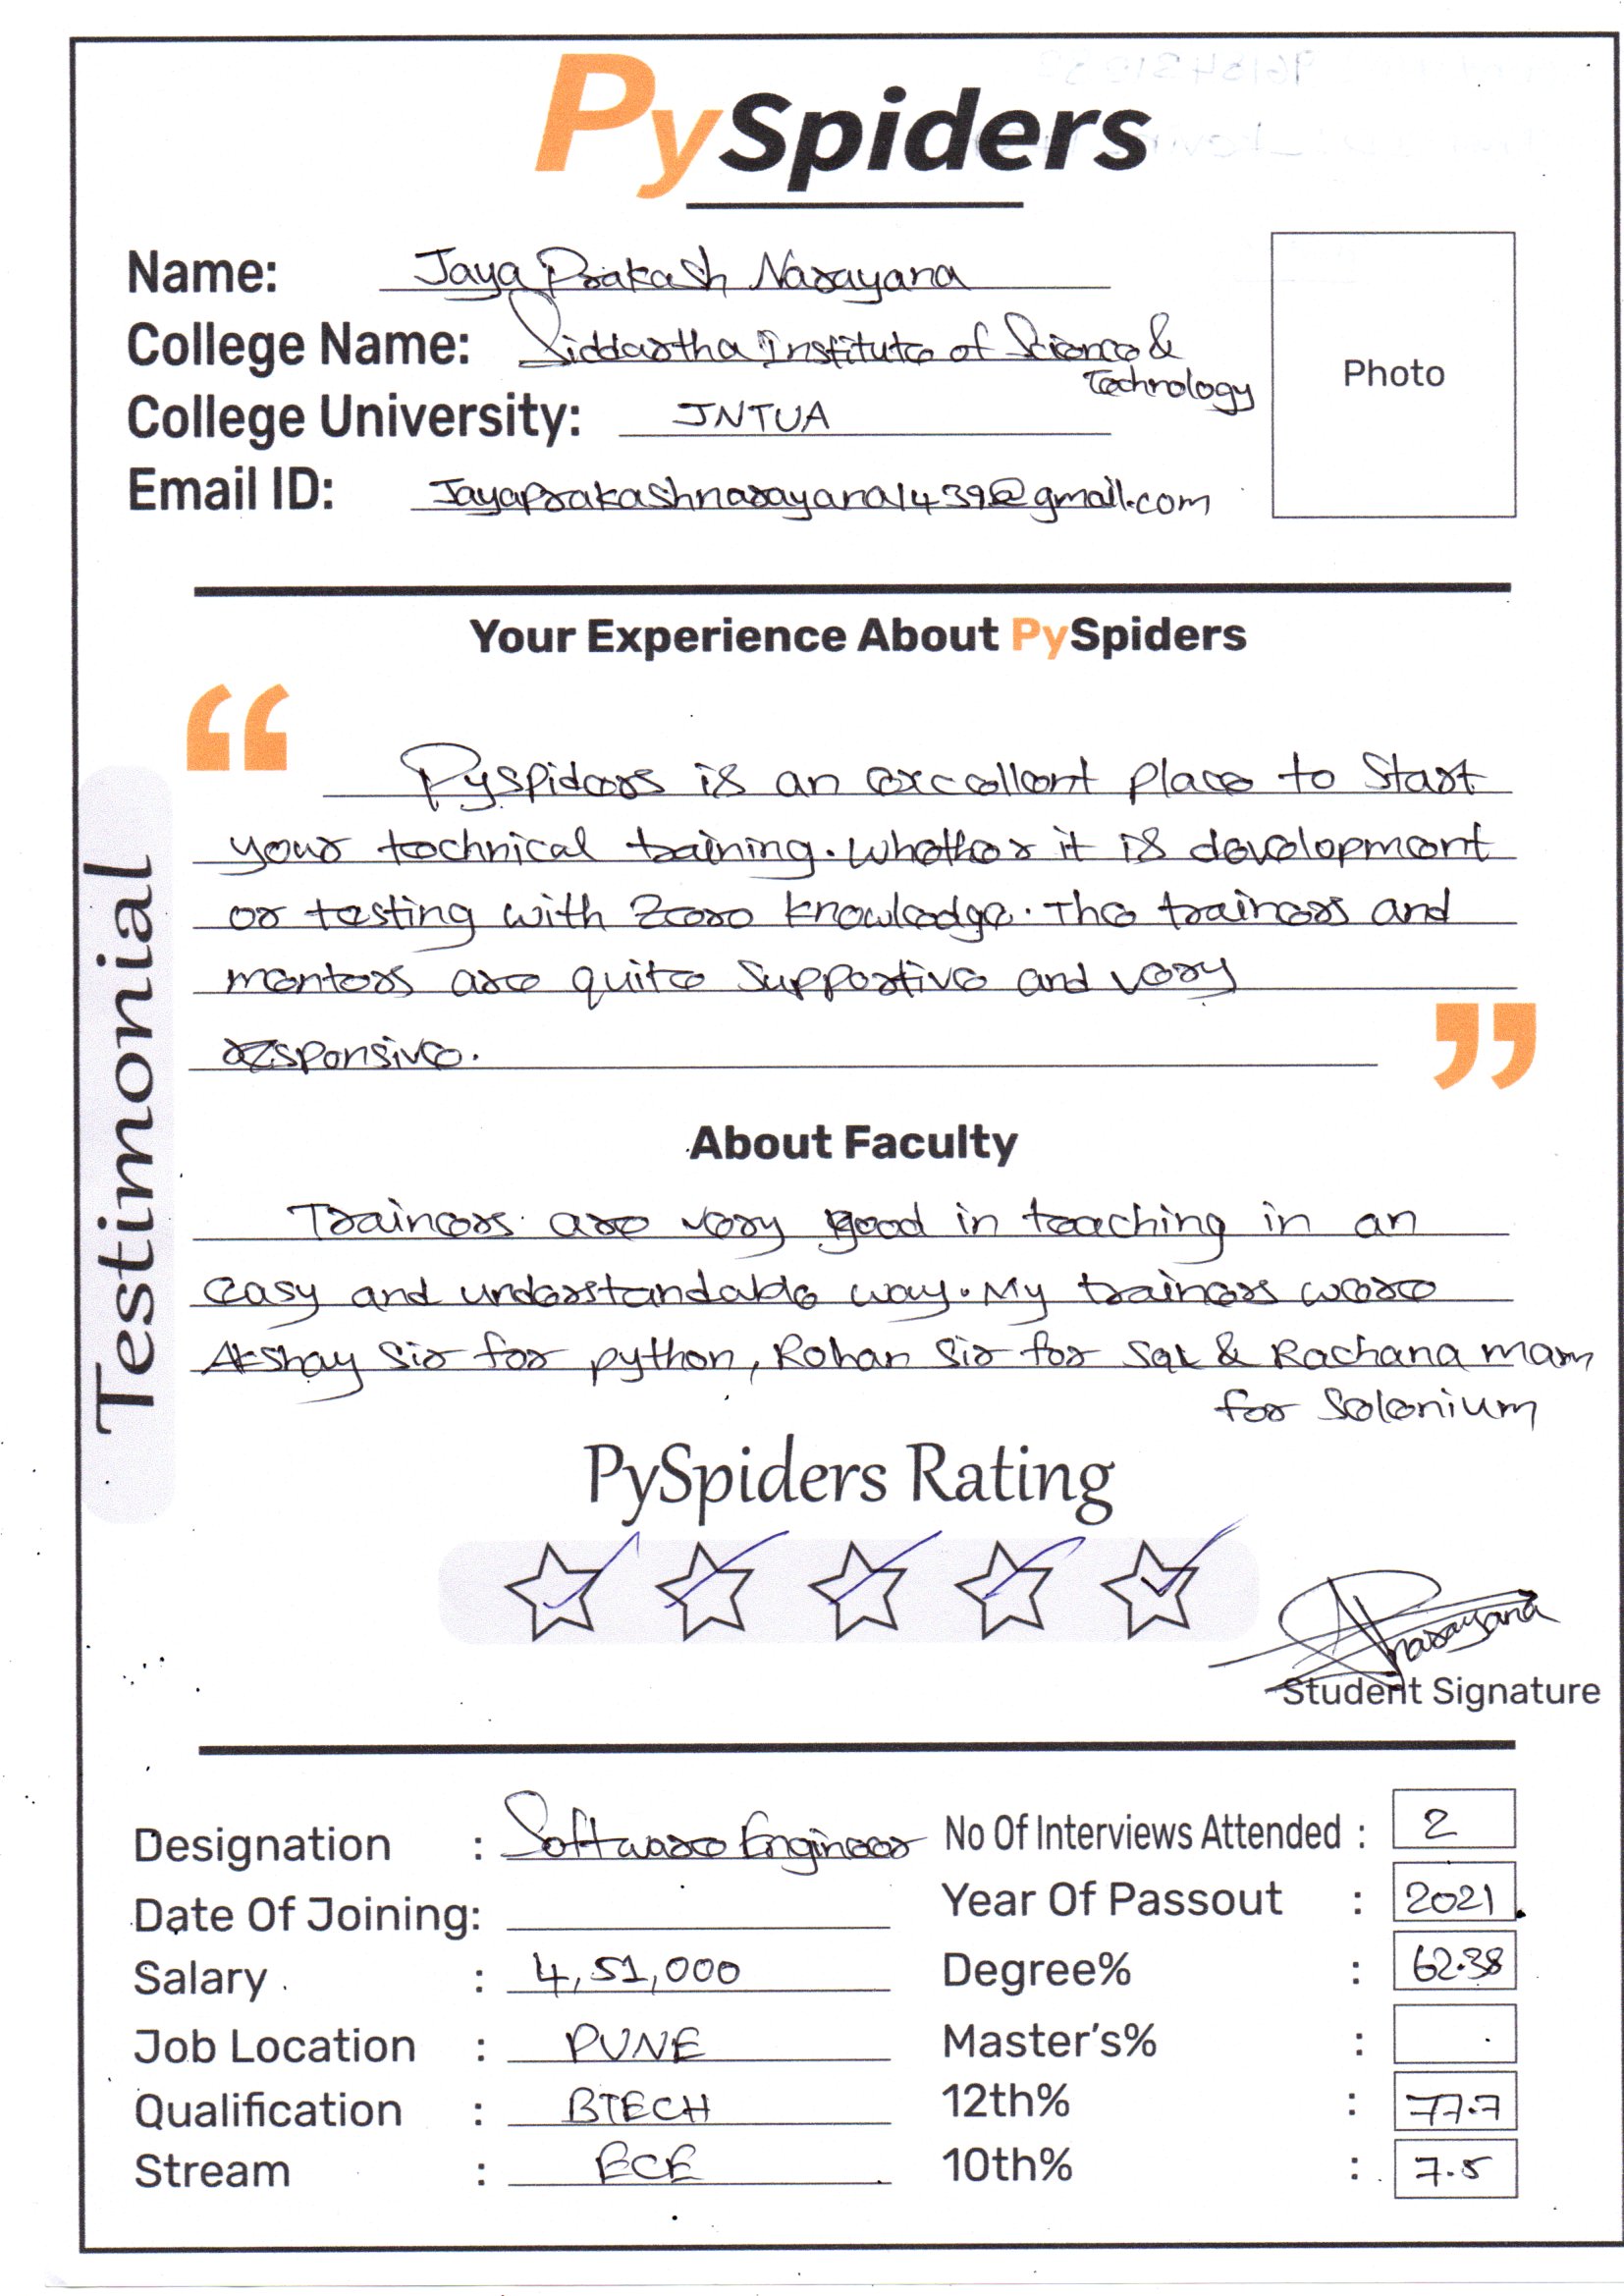 PySpiders
Name: Jaya Prakash Narayana
College Name: Siddartha Institute of Science &
Technology
Photo
College University: JNTUA
Email ID: Jayaprakashnarayana1439@gmail.com
Your Experience About PySpiders
“
Pyspiders is an excellent place to start
your technical training. Whether it is development
or testing with zero knowledge. The trainers and
mentors are quite supportive and very
responsive.
”
Testimonial
About Faculty
Trainers are very good in teaching in an
easy and understandable way. My trainers were
Akshay Sir for python, Rohan Sir for Sql & Rachana mam
for Selenium
PySpiders Rating
Narayana
Student Signature
Designation : Software Engineer
Date Of Joining:
Salary : 4,51,000
Job Location : PUNE
Qualification : BTECH
Stream : ECE
No Of Interviews Attended : 2
Year Of Passout : 2021
Degree% : 62.38
Master's% :
12th% : 77.7
10th% : 7.5